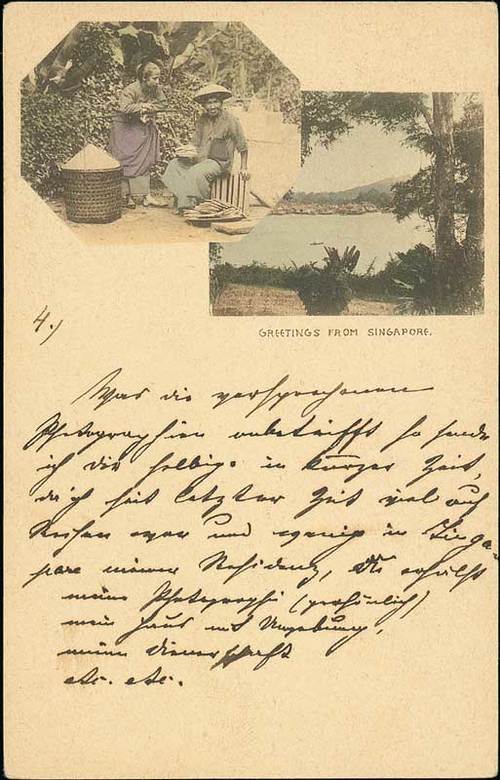 GREETINGS FROM SINGAPORE.
4.)
Was die versprochenen
Photographien anbetrifft so sende
ich dir selbige in kurzer Zeit,
da ich seit letzter Zeit viel auf
Reisen war und wenig in Singa-
pore meiner Residenz, Du erhälst
meine Photographi (persönlich)
mein Haus mit Umgebung,
meine Dienerschaft
etc. etc.